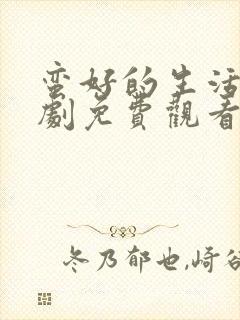 蛮好的生活
劇免費觀看
冬乃郁也,崎谷